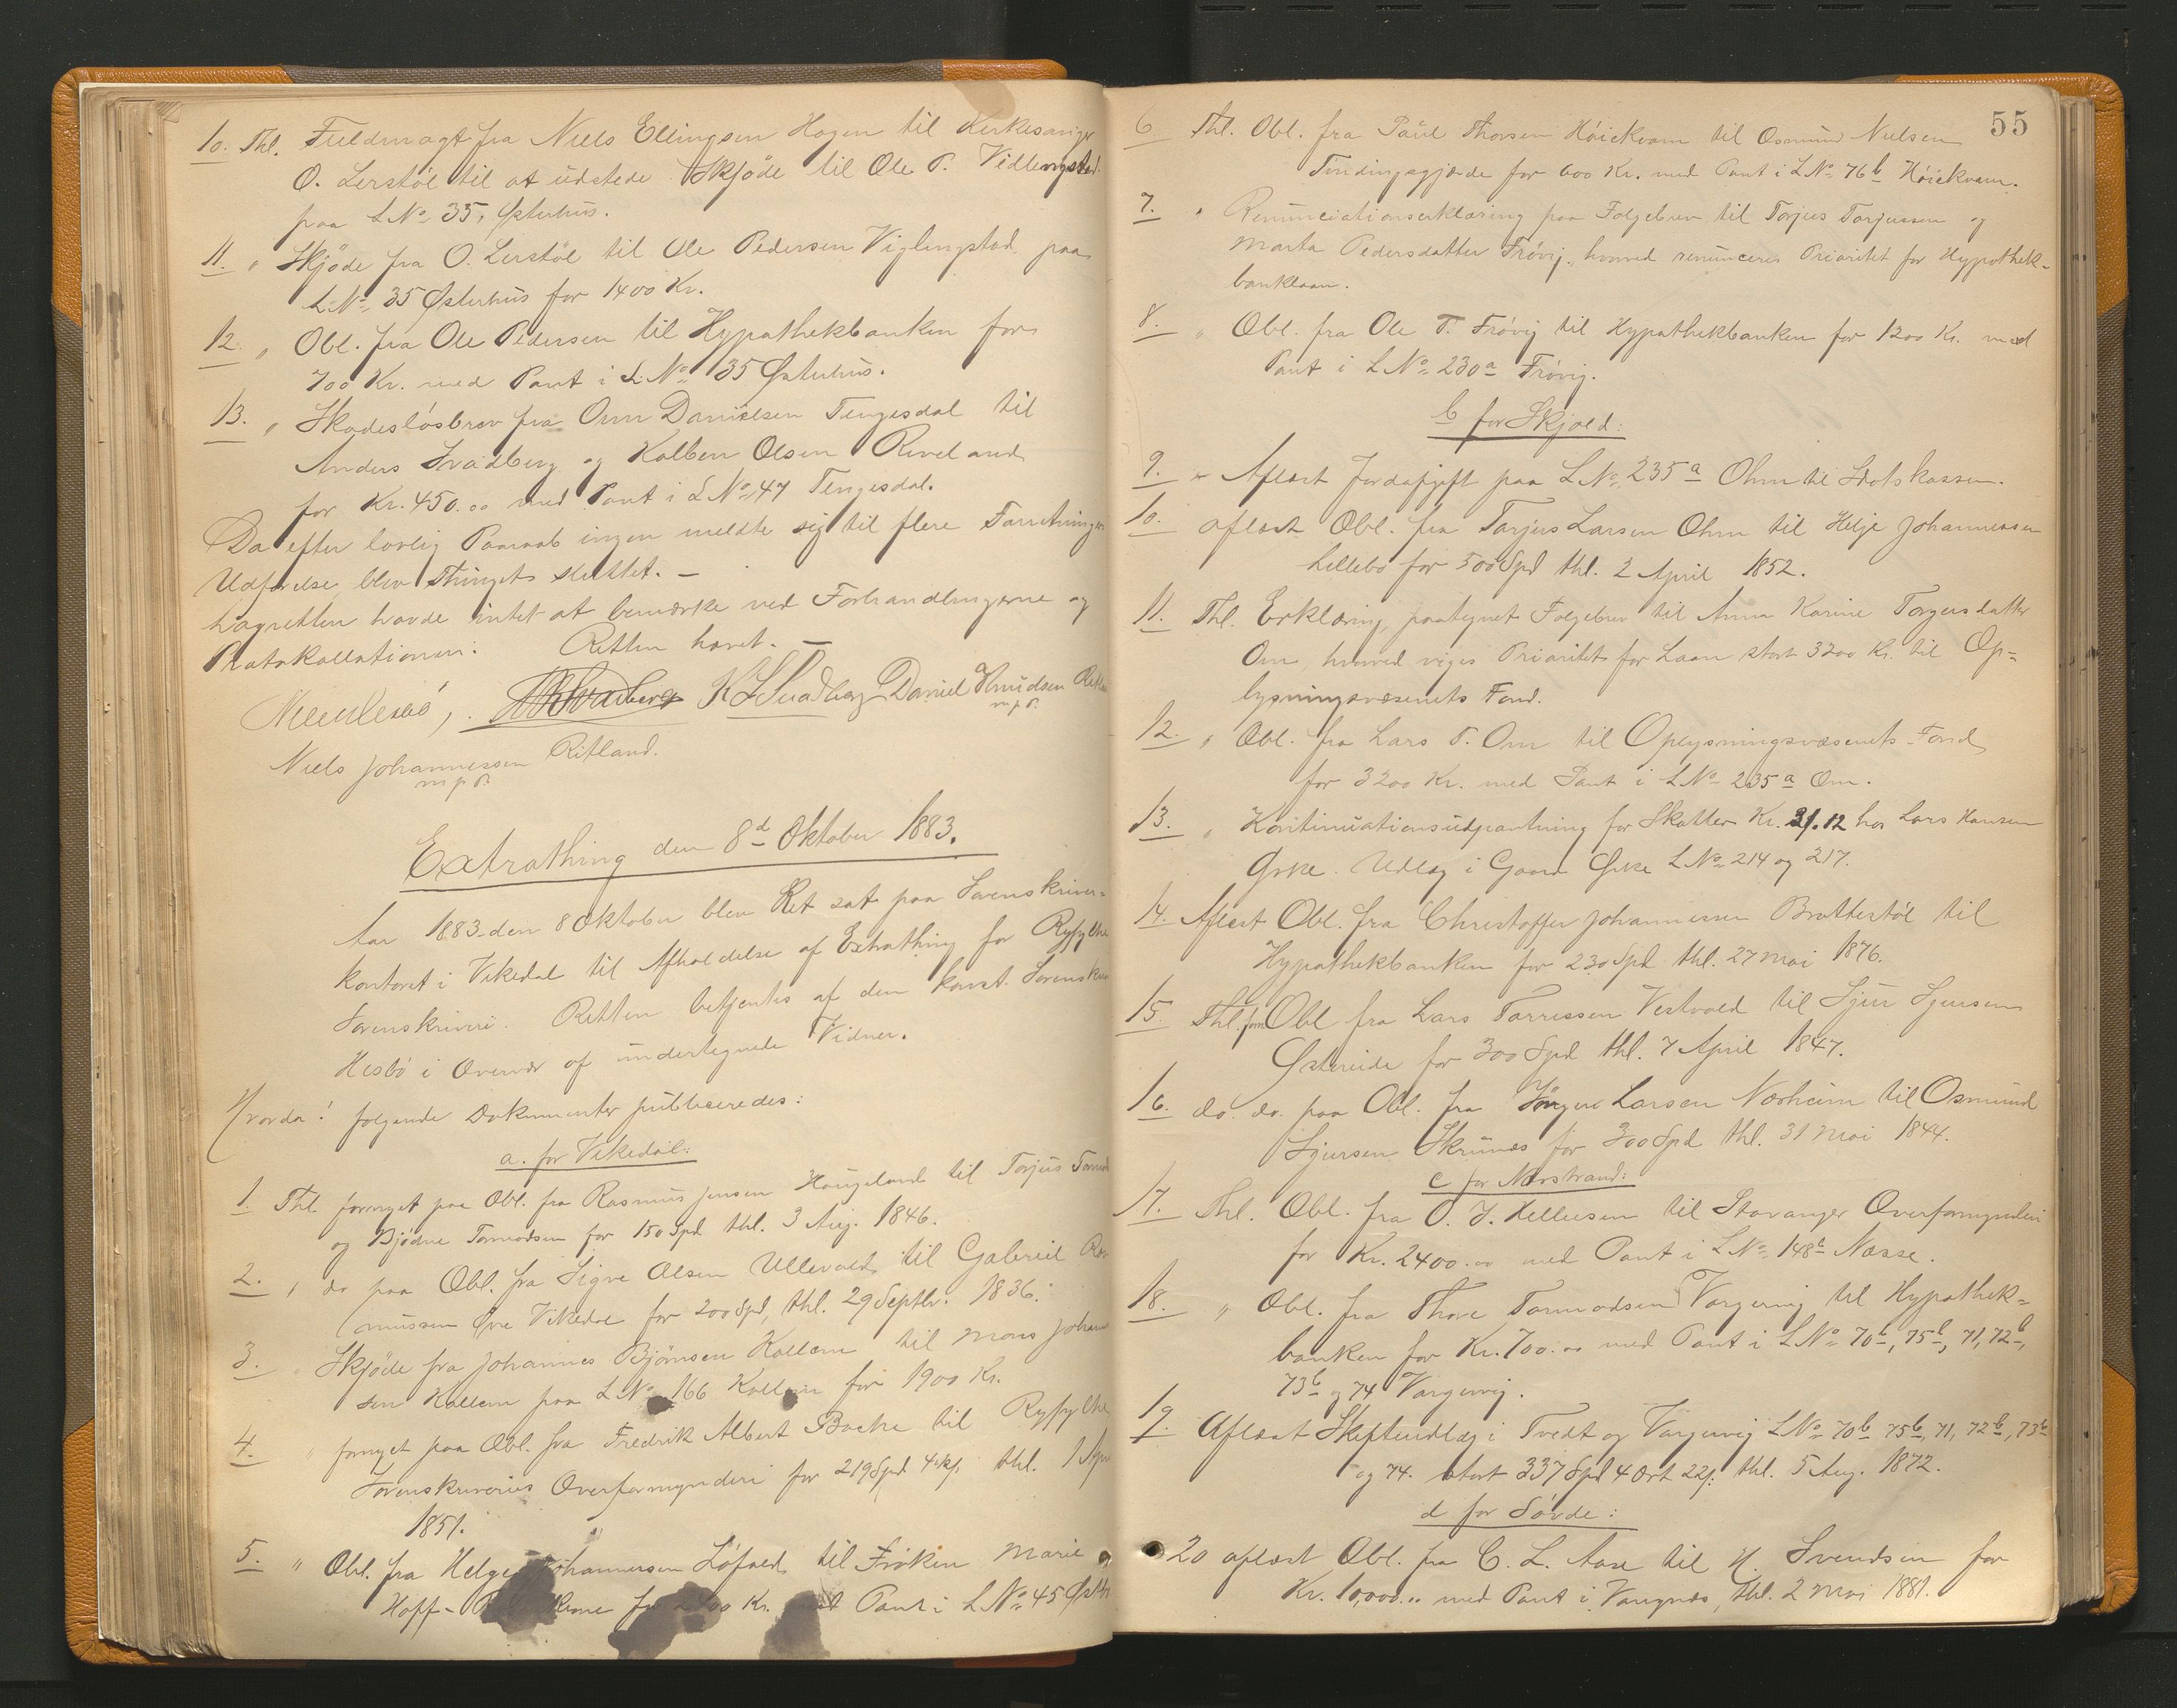 10. Thl. Fuldmagt fra Niels Ellingsen Hagen til Kirkesanger
O. Lerstöl til at udstede Skjöde til Ole P. Vidlengstad
paa L No 35, Østerhus.
11. " Skjöde fra O. Lerstöl til Ole Pedersen Viglengstad paa
L No 35 Østerhus for 1400 Kr.
12. " Obl. fra Ole Pedersen til Hypothekbanken for
700 Kr. med Pant i L No 35 Østerhus.
13. " Skadeslösbrev fra Omn Danielsen Tengesdal til
Anders Svadberg og Kolben Olsen Riveland
for Kr. 450.00 med Pant i L No 47 Tengesdal.
Da efter lovlig Paaraab ingen meldte sig til flere Forretninger
Udförelse, blev Thinget sluttet. —
Lagretten havde intet at bemærke ved Forhandlingerne og
Protokollationen. Retten hævet. —
K L Svadberg Daniel Knudsen
m. p. P.
Niels Johannessen Ritland.
m p P.
Extrathing den 8d Oktober 1883.
Aar 1883 den 8 Oktober blev Ret sat paa Sorenskriver-
kontoret i Vikedal til Afholdelse af Extrathing for Ryfylke
Sorenskriveri. Retten betjentes af den konst. Sorenskriver
Hesbö i Overvær af undertegnede Vidner.
Hvorda! følgende Dokumenter publiceredes:
a. for Vikedal:
1. Thl. fornyet paa Obl. fra Rasmus Jensen Haugeland til Torjus
og Bjödne Tormodsen for 150 Spd thl. 3 Aug. 1846.
2. " do paa Obl. fra Sigve Olsen Ullevold til Gabriel Ras
mussen Øvre Vikedal for 200 Spd, thl. 29 Septbr. 1836.
3. " Skjöde fra Johannes Bjørnsen Kallem til Mons Johan
sen Kallem paa L No 166 Kallem for 1900 Kr.
4. " fornyet paa Obl. fra Fredrik Albert Backe til Ryfylke
Sorenskriveries Overformynderi for 219 Spd thl. 1
1851.
5. " Obl. fra Helge Johannessen Löfald til Fröken Marie
Hoff- for Kr. med Pant i L No 45
55
6 Thl. Obl. fra Paul Thorsen Höiekvam til Osmund Nielsen
Tindingsgjærde for 600 Kr. med Pant i L No 76b Höiekvam.
7. " Renunciationserklæring paa Folgebrev til Torjus Torjussen og
Marta Pedersdatter Frövig, hvorved renunceres Prioritet for Hypothek-
banklaan.
8. " Obl. fra Ole T. Frövig til Hypothekbanken for 1200 Kr. med
Pant i L No 230a Frövig.
b for Skjold:
9. " Aflæst Jordafgift paa L No 235a Ohm til Statskassen.
10. aflæst Obl. fra Torjus Larsen Ohm til Helje Johannessen
Lillebö for 500 Spd thl. 2 April 1852.
11. Thl. Erklæring, paategnet Folgebrev til Anna Karine Torgersdatter
Om, hvorved viges Prioritet for Laan stort 3200 Kr. til Op-
lysningsvæsenets Fond.
12. " Obl. fra Lars T. Om til Oplysningsvæsenets Fond
for 3200 Kr. med Pant i L No 235a Om.
13. " Kontinuationsudpantning for Skatter Kr. 21.12 hos Lars Hansen
Ørke. Udlæg i Gaard Ørke L No 214 og 217.
14. Aflæst Obl. fra Christoffer Johannessen Brattestöl til
Hypothekbanken for 230 Spd thl. 27 Mai 1876.
15. Thl. forn. Obl fra Lars Torressen Vestvold til Sjur Sjursen
Østereide for 300 Spd thl. 7 April 1847.
16. do. do. paa Obl. fra Jörgen Larsen Norheim til Osmund
Sjursen Skrunes for 300 Spd thl. 31 Mai 1844.
c for Nerstrand:
17. Thl. Obl. fra O. J. Hellesen til Stavanger Overformynderi
for Kr. 2400.00 med Pant i L No 148c Næsse.
18. " Obl. fra Thore Tormodsen Vargervig til Hypothek-
banken for Kr. 700.00 med Pant i L No 70b, 75b, 71, 72b,
73b og 74 Vargervig.
19. Aflæst Skifteudlæg i Tvedt og Vargervig L No 70b 75b, 71, 72b, 73b
og 74. stort 337 Spd 4 Ort 22 s. thl. 5 Aug. 1872.
d for Sövde:
20 aflæst Obl. fra C. L. Aase til H. Svendsen for
Kr. 10,000.. med Pant i Vangnæs, thl. 2 Mai 1881.